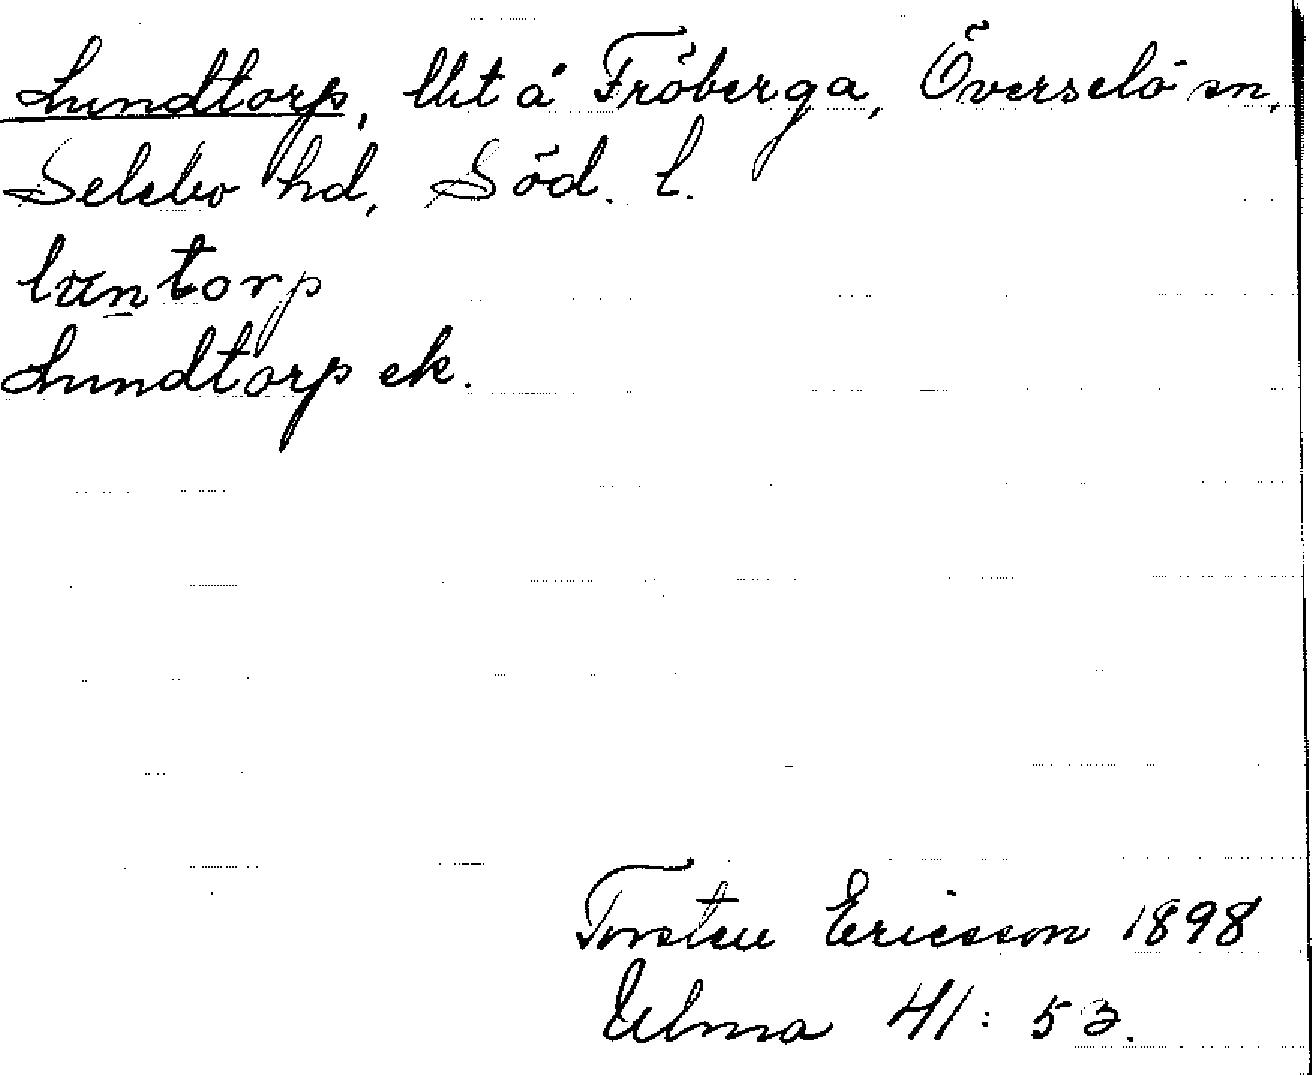 Lundtorp, Utå Fröberga, Överselö sn,
Selebo hd, Söd. l.
luntorp
Lundtorp ek.
Torsten Ericsson 1898
Ulma 41:53.